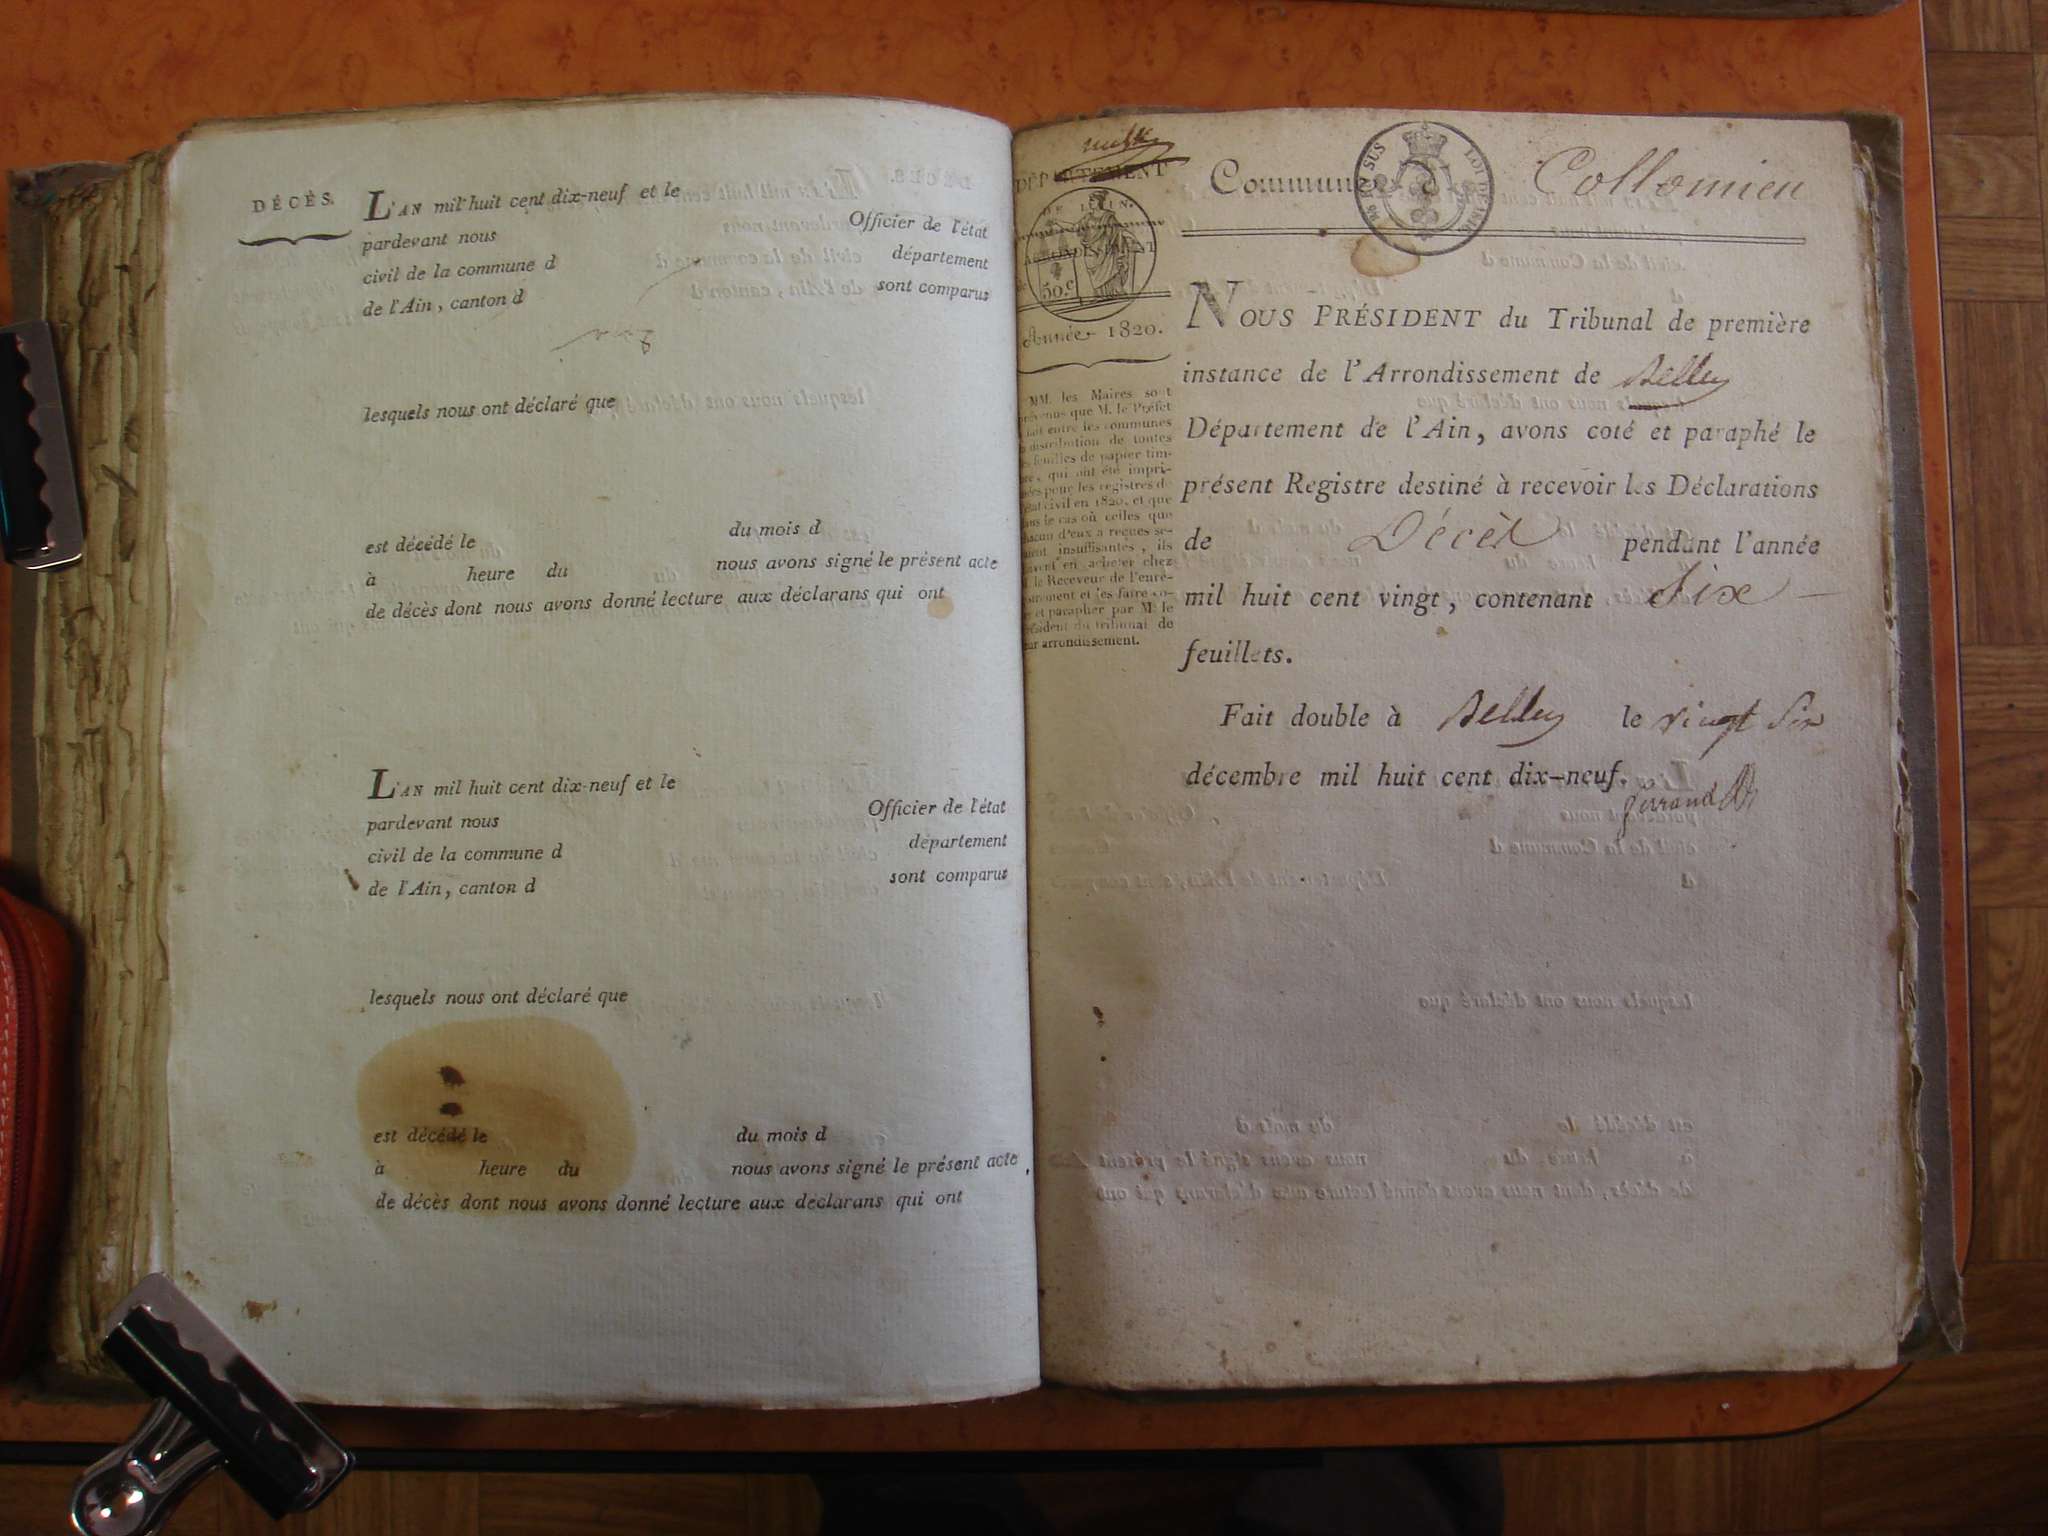 DÉCÈS.
L'AN mil huit cent dix-neuf et le
pardevant nous Officier de l'état
civil de la commune d département
de l'Ain, canton d sont comparus
lesquels nous ont déclaré que
est décédé le du mois d
à heure du nous avons signé le présent acte
de décès dont nous avons donné lecture aux déclarans qui ont
L'AN mil huit cent dix-neuf et le
pardevant nous Officier de l'état
civil de la commune d département
de l'Ain, canton d sont comparus
lesquels nous ont déclaré que
est décédé le du mois d
à heure du nous avons signé le présent acte
de décès dont nous avons donné lecture aux déclarans qui ont
DÉPARTEMENT
DE L'AIN.
ARRONDISSEMENT
50.c
Année 1820.
MM. les Maires sont
prévenus que M. le Préfet
fait entre les communes
distribution de toutes
feuilles de papier tim-
qui ont été impri-
mées pour les registres de
état civil en 1820, et que
dans le cas où celles que
chacun d'eux a reçues se-
insuffisantes, ils
en acheter chez
le Receveur de l'enré-
et les faire co-
et parapher par M. le
président du tribunal de
arrondissement.
Commune d Collomieu
EN SUS LOI DE 1816
NOUS PRÉSIDENT du Tribunal de première
instance de l'Arrondissement de Belley
Département de l'Ain, avons coté et paraphé le
présent Registre destiné à recevoir les Déclarations
de Décès pendant l'année
mil huit cent vingt, contenant Six
feuillets.
Fait double à Belley le vingt Six
décembre mil huit cent dix-neuf.